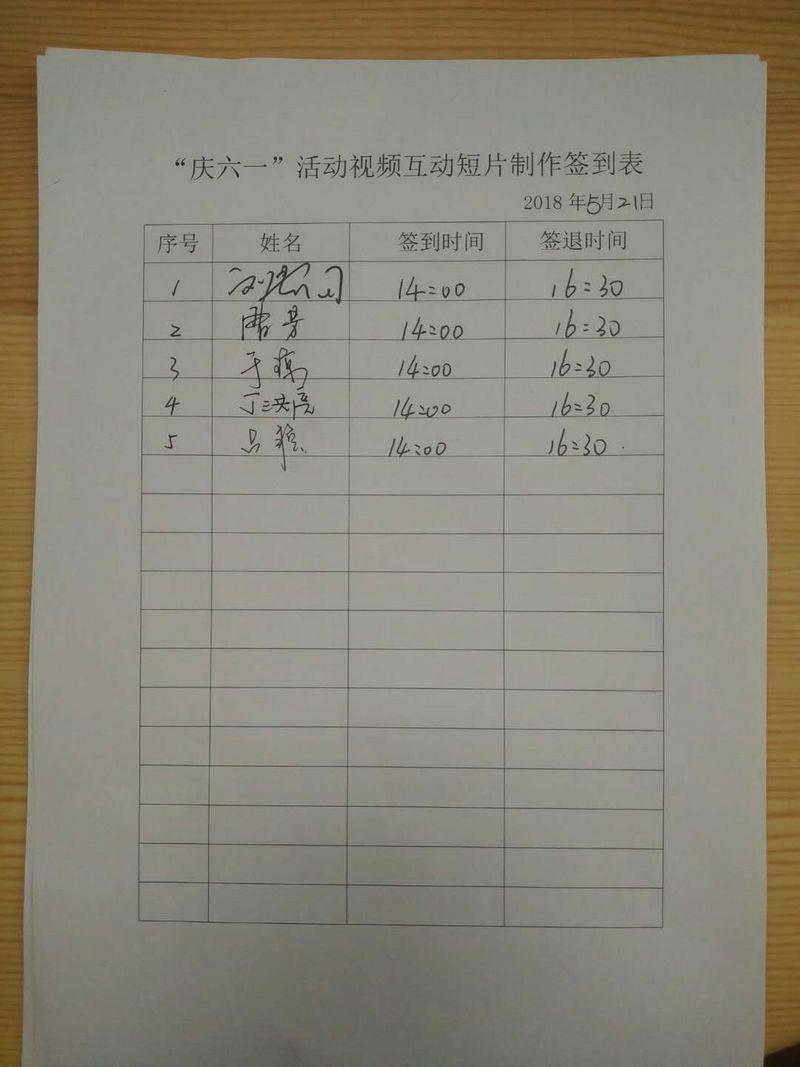 “庆六一”活动视频互动短片制作签到表
2018年5月21日
序号 姓名 签到时间 签退时间
1 14:00 16:30
2 曹芳 14:00 16:30
3 于 14:00 16:30
4 丁 14:00 16:30
5 吕 14:00 16:30